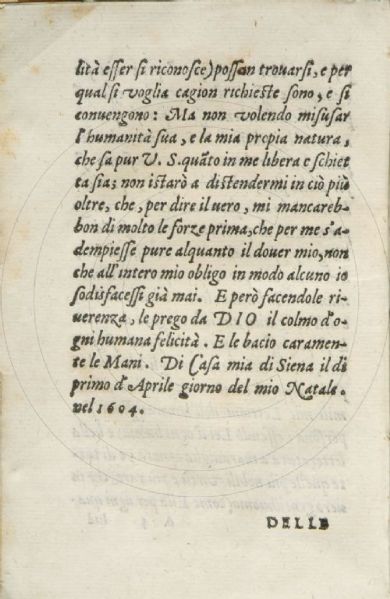 lità esser si riconosce) posson trouarsi, e per
qual si voglia cagion richieste sono, e si
conuengono: Ma non volendo misusar
l'humanità sua, e la mia propia natura,
che sa pur V. S. quãto in me libera e schiet
ta sia; non istarò a distendermi in ciò più
oltre, che, per dire il uero, mi mancareb-
bon di molto le forze prima, che per me s'a-
dempiesse pure alquanto il douer mio, non
che all'intero mio obligo in modo alcuno io
sodisfacessi già mai. E però facendole ri-
uerenza, le prego da DIO il colmo d'o-
gni humana felicità. E le bacio caramen-
te le Mani. Di Casa mia di Siena il dì
primo d'Aprile giorno del mio Natale.
nel 1604.
DELLE